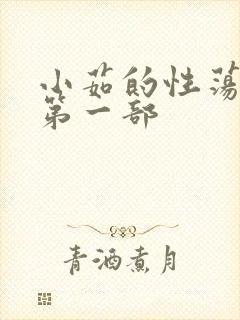 小茹的性荡
第一部
青酒煮月